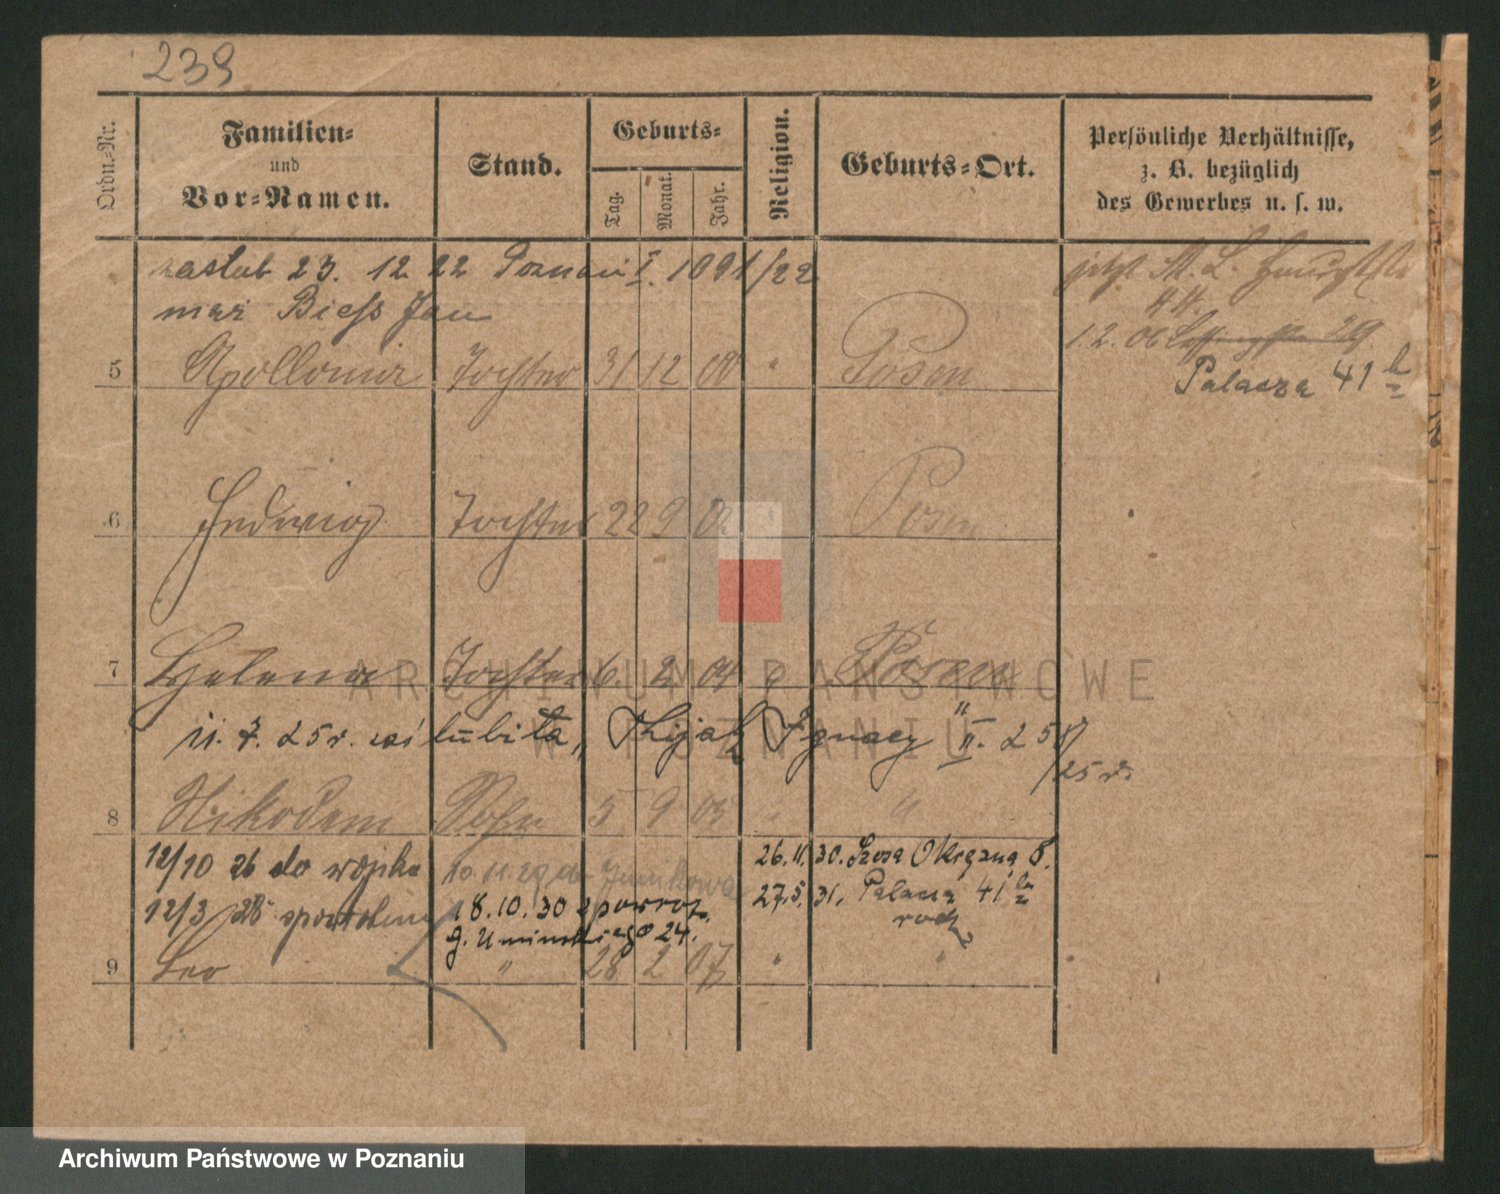 239
Ordn.-Nr.
Familien-
und
Vor-Namen.
Stand.
Geburts-
Tag.
Monat.
Jahr.
Religion.
Geburts-Ort.
Persönliche Verhältnisse,
z. B. bezüglich
des Gewerbes u. s. w.
zaślub 23. 12 22 Poznań I. 1091/22
mąż Biess Jan
5 Apollonia Tochter 31 12 00 " Posen
jetzt St. L.
44.
12. 06 29.
Palacza 41
6 Hedwig Tochter 22 9 Posen
7 Helena Tochter 6. 2 04 " Posen
11. 7. 25 r. Ignacy II. 258/
/25 r.
8 Nikodem Sohn 5 9 05 " "
12/10 26 do wojska
10.11.29 do Junikowa
26.11.30. Szosa Okrężna 8.
12/3 28
18.10.30 z powrot.
27.5.31. Palacza 41
g. Umińskiego 24.
9 Leo " 28 2 07 " "
ARCHIWUM PAŃSTWOWE
W POZNANIU
Archiwum Państwowe w Poznaniu